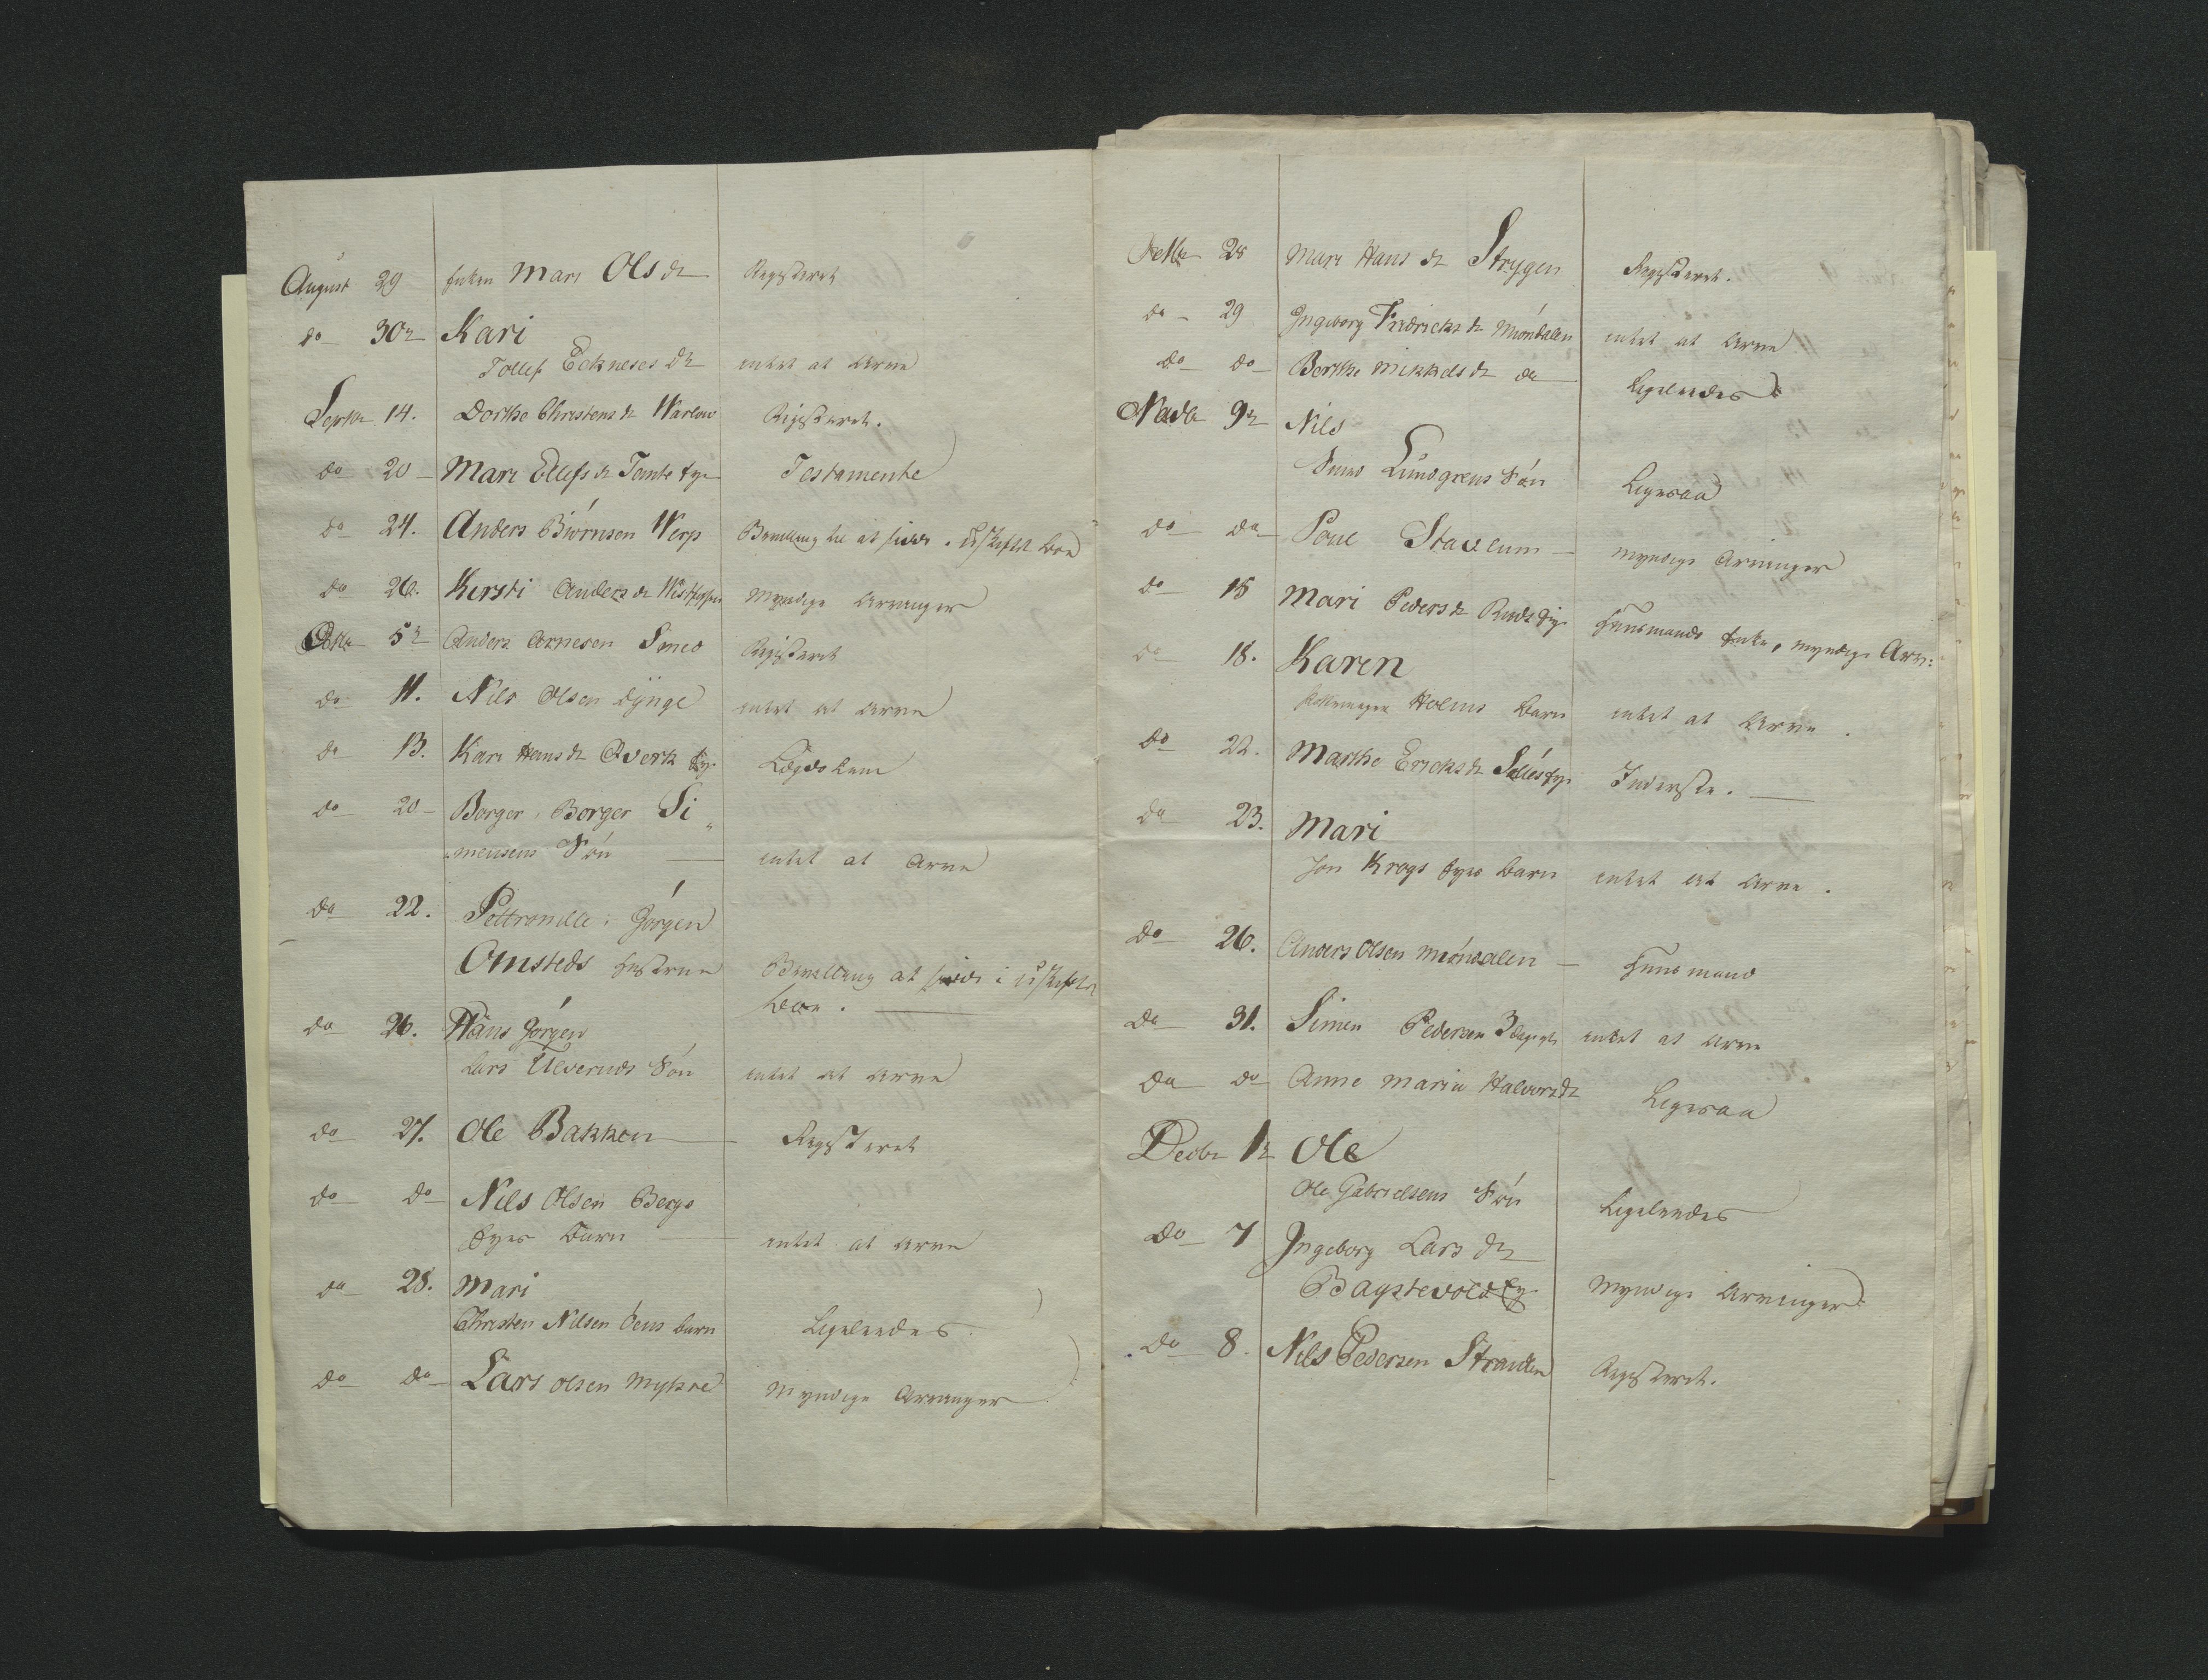 August 29 Enken Mari Ols dr Registeret
do 30te Kari
Tollef Eckneses dr intet at arve
Septbr 14. Dorthe Christens dr Warlow Registeret.
do 20 Mari Ellefs dr Tomte Eye Testamente
do 24. Anders Biørnsen Werp Bevilling til at sidde i uskiftet boe
do 26. Kirsti Anders dr myndige Arvinger
Octbr 5te Anders Arnesen Smed Registeret
do 11. Nils Olsen Dynge intet at arve
do 13. Kari Hans dr Qverk Ey. Lægdslem
do 20 Borger, Borger Si
mensens Søn intet at arve
do 22. Pettronille: Jørgen
Omsteds hustrue Bevilling at sidde i uskiftet
boe.
do 26. Hans Jørgen
Lars Ulveruds Søn intet at arve
do 27. Ole Bakken Registeret
do do Nils Olsen Bergs
Eyes Barn intet at arve
do 28. Mari
Christen Nilsen Bens barn Ligeledes
do do Lars Olsen Myhre Myndige Arvinger
Octbr 28 Mari Hans dr Strygen Registeret.
do 29 Ingeborg Fredricks dr Miøndalen intet at arve
do do Berthe Mikkels dr do Ligeledes
Novbr 9te Nils
Lundgrens Søn Ligesaa
do do Poul Stavlum myndige Arvinger
do 15 Mari Peders dr Ruds Eye Huusmands Enke, myndige Arv:
do 18. Karen
Holms barn intet at arve.
do 22. Marthe Ericks dr Sølles Eye Inderste.
do 23. Mari
Jon Krogs Eyes barn intet at arve.
do 26. Anders Olsen Miøndalen Huusmand
do 31. Simen Pedersen intet at arve
do do Anne Maria Halvors dr Ligesaa
Decbr 1te Ole
Ole Gabrielsens Søn Ligeledes
do 7 Ingeborg Lars dr
Bagstevold Ey. Myndige Arvinger
do 8. Nils Pedersen Stranden Registeret.